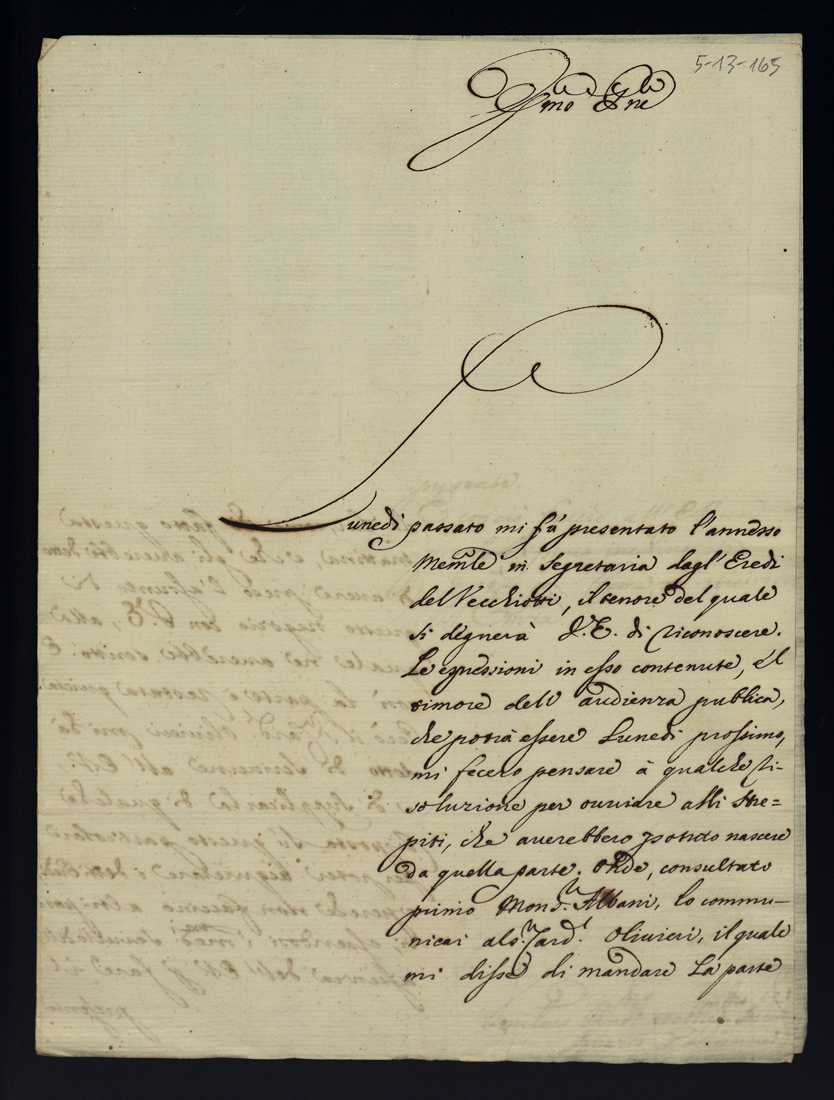 5-13-165
Ill.mo ed Ecc.mo Sig.re
Lunedì passato mi fù presentato l'annesso
Mem.le in Segretaria dagl'Eredi
del Vecchiotti, il tenore del quale
si degnerà V.E. di riconoscere.
Le espressioni in esso contenute, e'l
timore dell' audienza publica,
che potrà essere Lunedì prossimo,
mi fecero pensare à qualche ri-
soluzione per ovviare alli Stre=
piti, che averebbero potuto nascere
da quella parte. Onde, consultato
primo Mons.r Albani, lo commu-
nicai al S.r Card.l Olivieri, il quale
mi disse di mandare la parte